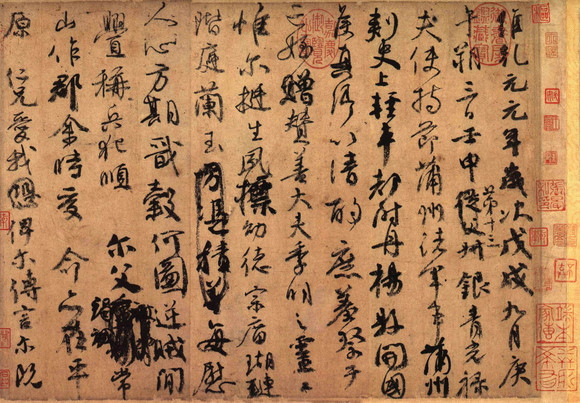 維乾元元年歲次戊戌九月庚
午朔三日壬申第十三叔銀青光祿
夫使持節蒲州諸軍事蒲州
刺史上輕車都尉丹楊縣開國
侯真卿以清酌庶羞祭于
亡姪贈贊善大夫季明之靈曰
惟爾挺生夙標幼德宗廟瑚璉
階庭蘭玉方憑積善每慰
人心方期戩穀何圖逆賊間
釁稱兵犯順 爾父竭誠常
山作郡余時受 命亦在平
原 仁兄愛我恐俾爾傳言爾既